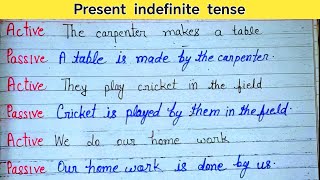 Present indefinite tense
Active The carpenter makes a table
Passive A table is made by the carpenter.
Active They play cricket in the field
Passive Cricket is played by them in the field.
Active We do our home work
Passive Our home work is done by us.